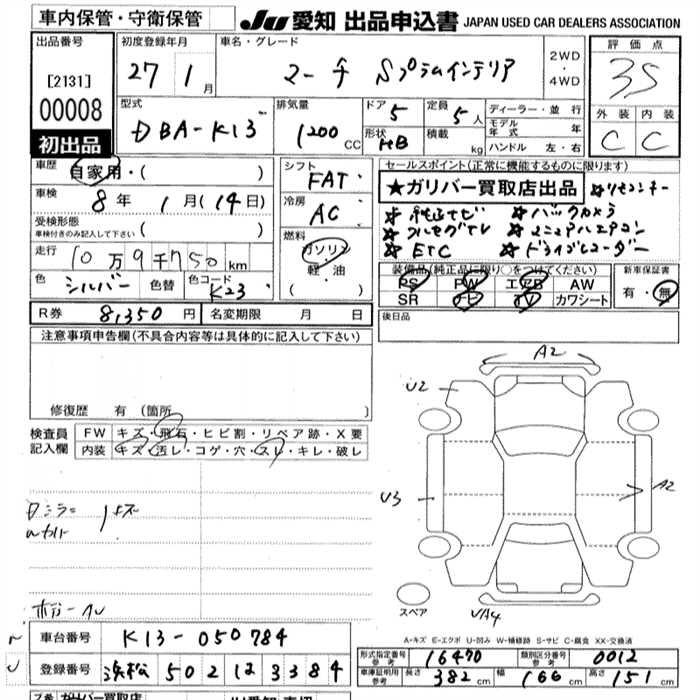 車内保管・守衛保管 JU 愛知 出品申込書 JAPAN USED CAR DEALERS ASSOCIATION
出品番号 初度登録年月 車名・グレード 評価点
[2131] 27 1月 マーチ Sプラムインテリア 2WD・4WD 3.5
00008 型式 排気量 ドア 5 定員 5人 ディーラー・並行 外装 内装
DBA-K13 1200CC 形状 HB 積載 kg モデル年式 年 C C
初出品 ハンドル 左・右
車歴 自家用・( ) シフト FAT セールスポイント(正常に機能するものに限ります)
車検 8年 1月(14日) 冷房 AC ★ガリバー買取店出品 ★リモコンキー
受検形態 ( ) ★純正ナビ ★バックカメラ
車検付きのみ記入して下さい 燃料 ★フルセグTV ★マニュアルエアコン
走行 10万9千750km ガソリン ★ETC ★ドライブレコーダー
軽・油 装備品(純正品に限り○をつけてください) 新車保証書
色 シルバー 色替 色コード K23 ( ) PS PW エアB AW 有・無
SR ナビ TV カワシート
R券 8,350円 名変期限 月 日 後日品
注意事項申告欄(不具合内容等は具体的に記入して下さい)
修復歴 有 (箇所 )
検査員 FW キズ・飛石・ヒビ割・リペア跡・X要
記入欄 内装 キズ・汚レ・コゲ・穴・スレ・キレ・破レ
A2
U2
U3
A2
スペア
A-キズ E-エクボ U-凹み W-補修跡 S-サビ C-腐食 XX-交換済
車台番号 K13-050784 型式指定番号 参考 16470 類別区分番号 参考 0012
登録番号 浜松 502 3384 車庫証明用 参考 長さ 382cm 幅 166cm 高さ 151cm
ガリバー買取店